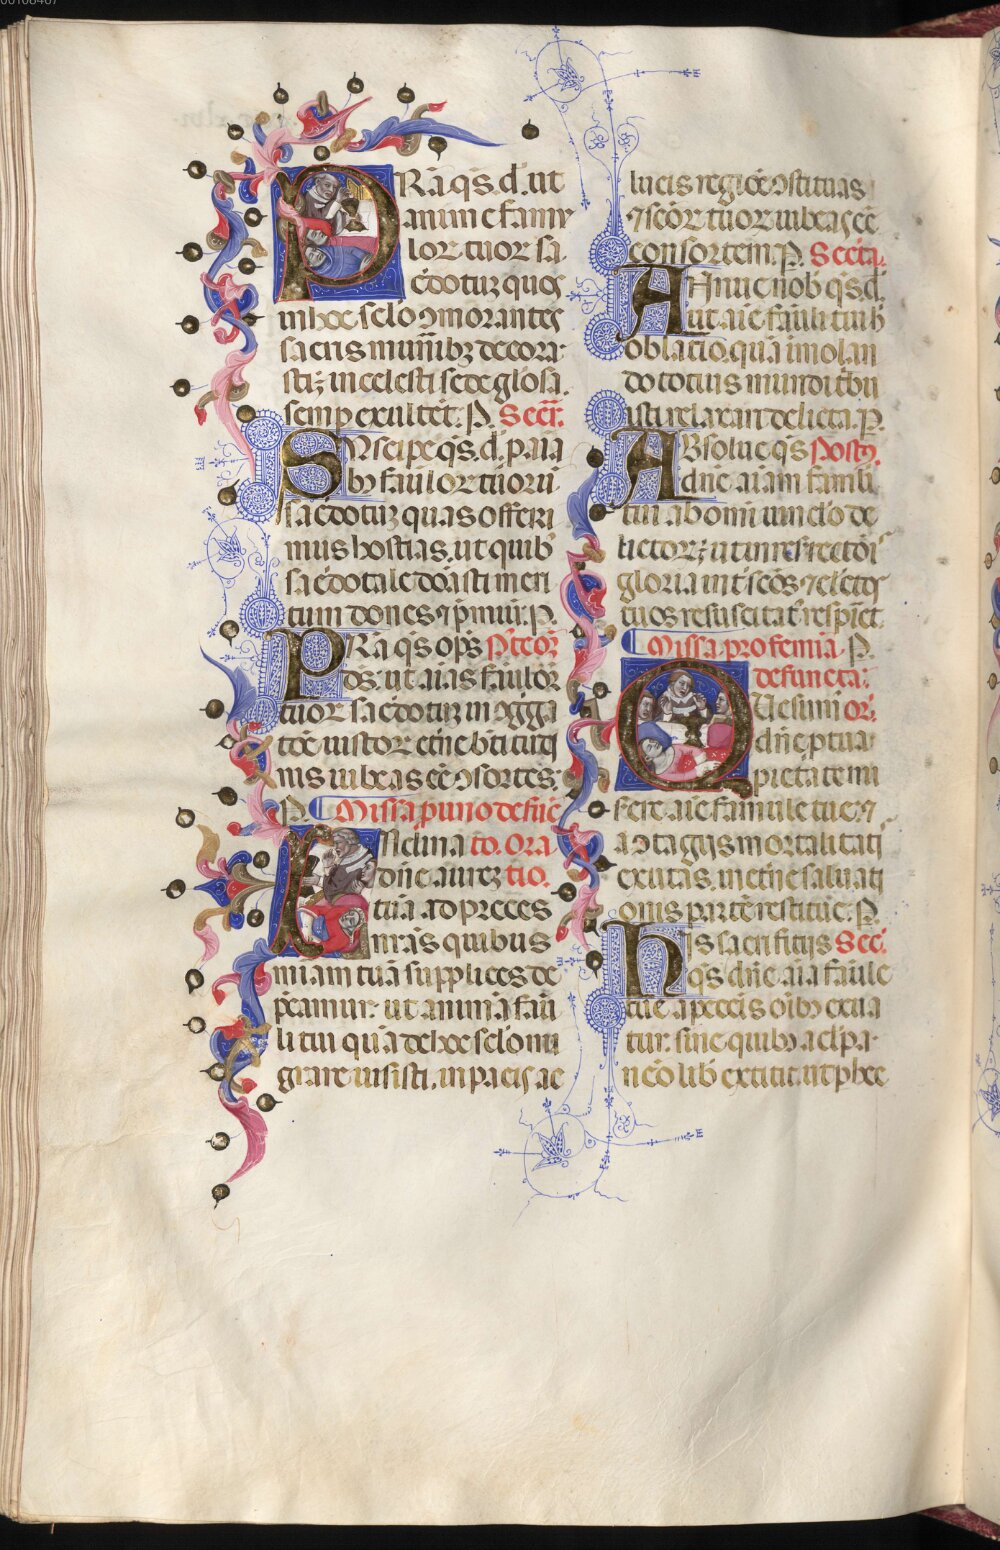 PRa. qs. d. ut
anime famu
lor tuor sa
cdotuꝫ quos
in hoc sclo ɔmorantes
sacris munib; decora
sti; in celesti sede glosa
semp exultēt. P. Secr.
SUscipe qs. d. p aīa
b; faulor tuorū
sacdotuꝫ quas offeri
mus hostias. ut quib
sacdotale donasti meri
tum dones ⁊ pmiū. P.
PRa qs ops Ptcoꝫ
ds. ut aias faulor
tuor sacdotuꝫ in ɔgga
tōe iustor etne btitudi
nis iubeas eē ɔsortes.
P. Missa p uno defūc
INclina to. Ora
dne aurez tio.
tuā ad preces
nrās quibus
miam tuā supplices de
pcamur. ut animā fau
li tui quā de hoc sclo mi
grare iussisti. in pacis ac
lucis regiōe ɔstituas
⁊ scōr tuor iubeas eē
consortem. P. Secta.
ANnue nob qs. d.
ut aīe fauli tui h
oblatio. quā imolan
do totius mundi tbu
isti relaxari delicta. P.
ABsolue qs Postco.
dne. aiam famli
tui ab omī uinclo de
lictorꝫ ut in resrectōi
gloria int scōs ⁊ elctos
tuos resuscitat respiret
Missa pro femia P.
defuncta.
QUesumus ori.
dne p tua
pietate mi
sere. aīe famule tue. ⁊
a ɔtagiis mortalitatis
exutas. in etne saluati
onis partē restitue. P.
His sacrificiis Sec.
qs dne aīa faule
tue a peccis oib; exua
tur. sine quib; a clpa
nēo lib extitit. ut p hec